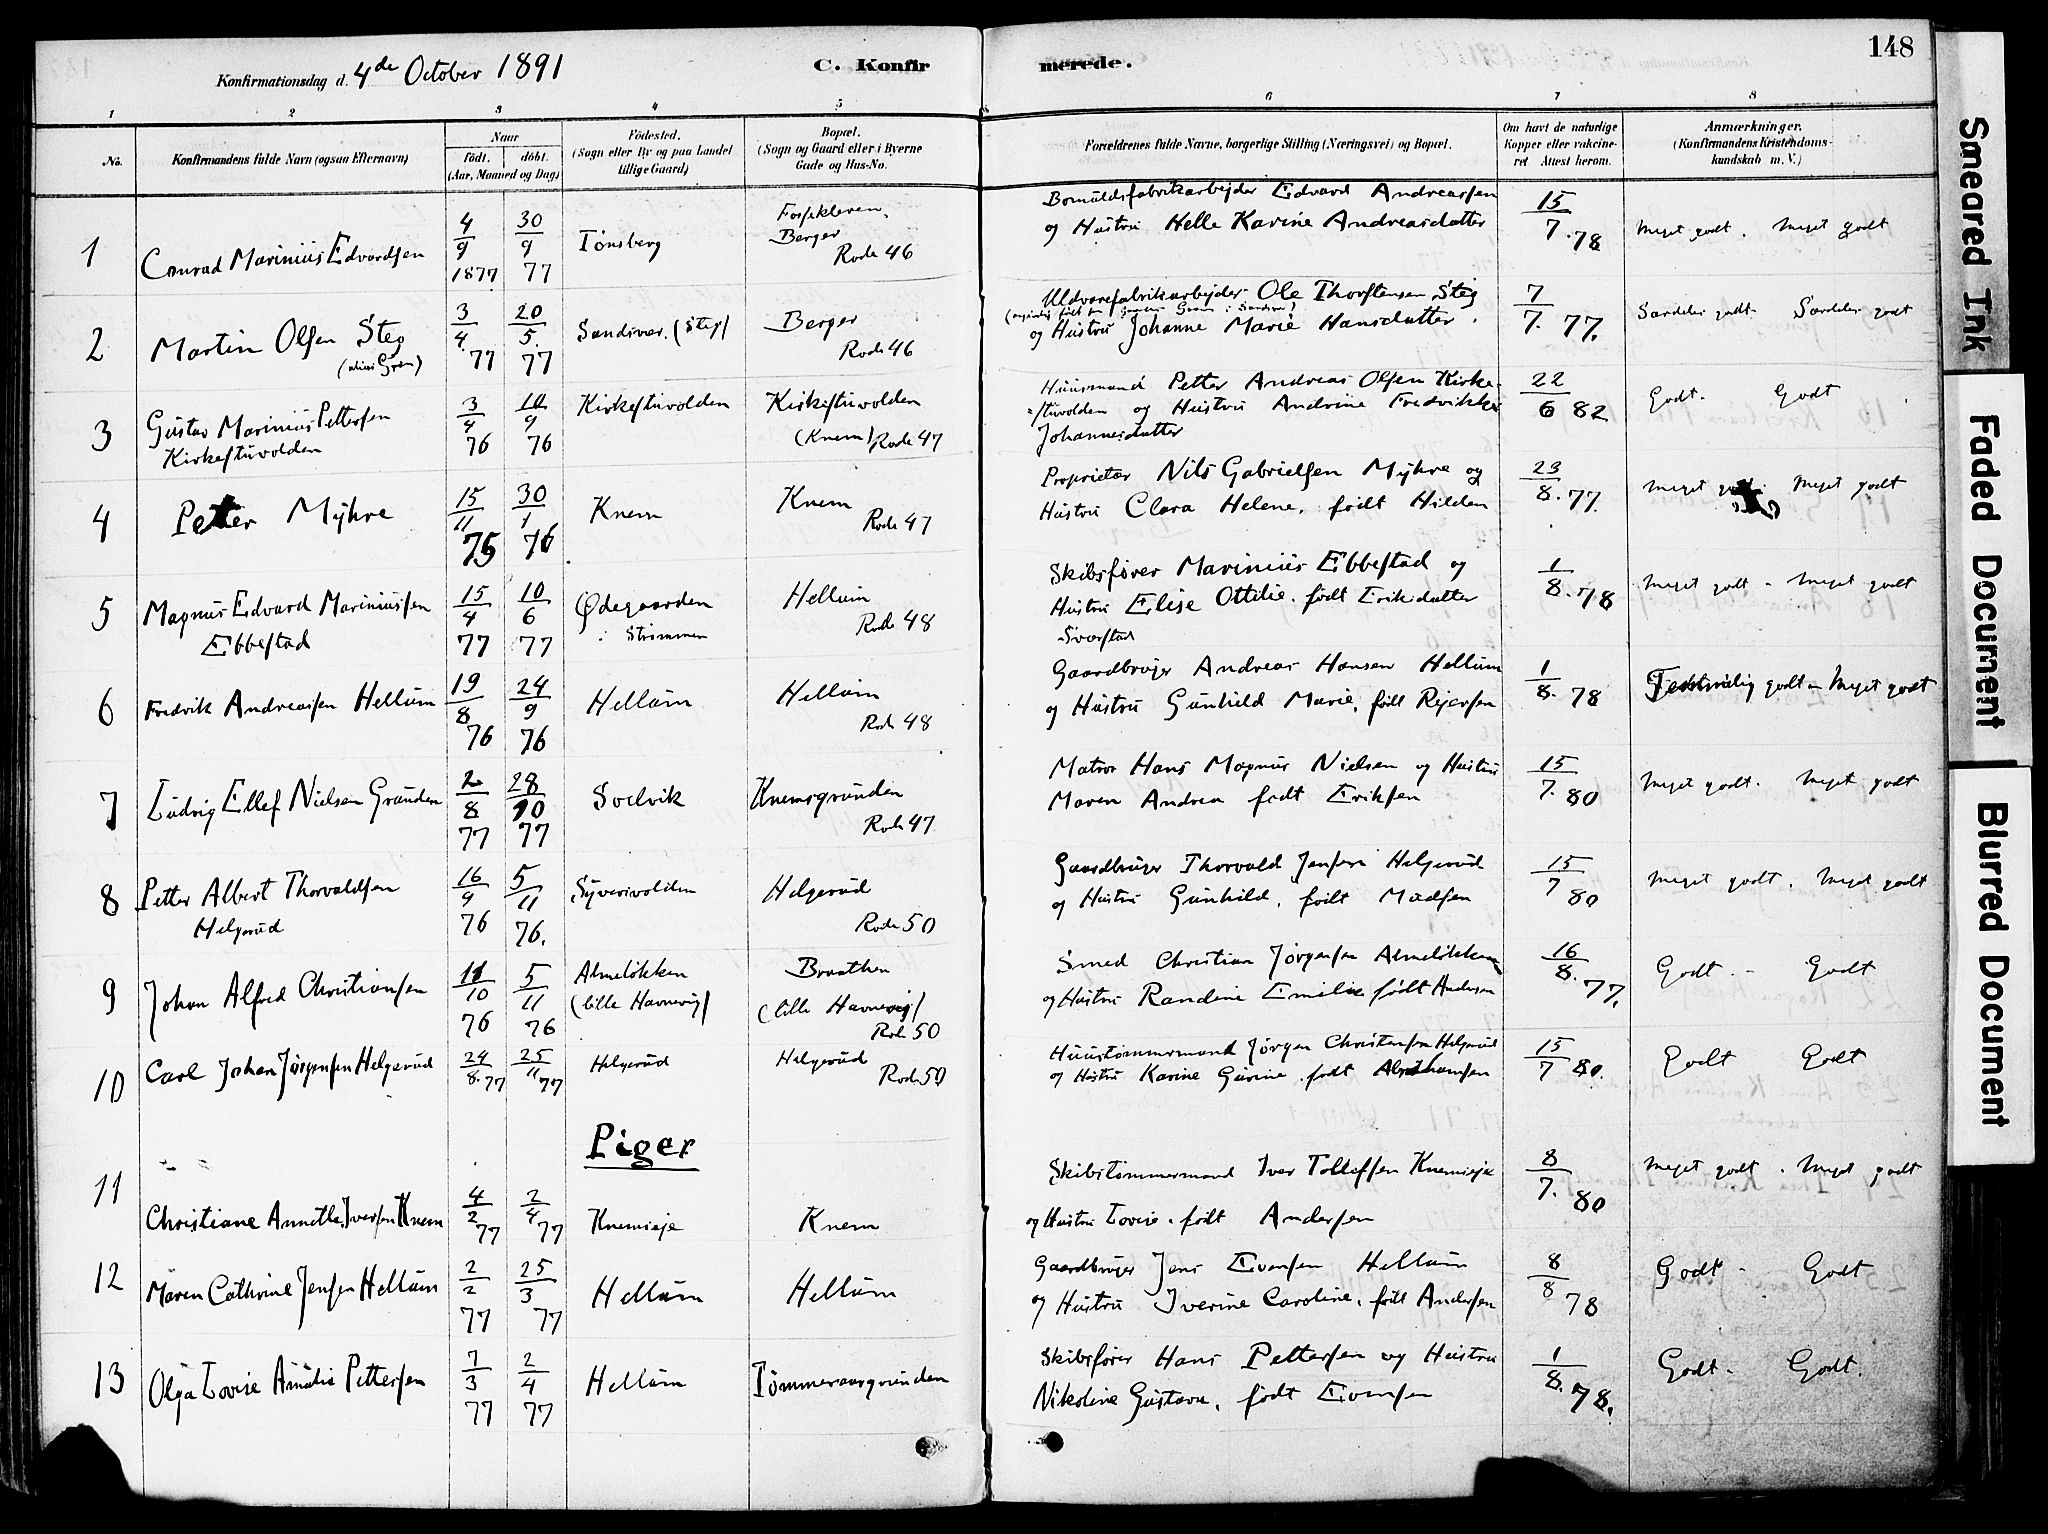 148
Konfirmationsdag d. 4de October 1891
C. Konfirmerede.
1 2 3 4 5 6 7 8
No.
Konfirmandens fulde Navn (ogsaa Efternavn)
Naar
födt. döbt.
(Aar, Maaned og Dag)
Födested.
(Sogn eller By og paa Landet
tillige Gaard)
Bopæl.
(Sogn og Gaard eller i Byerne
Gade og Hus-No.
Forældrenes fulde Navne, borgerlige Stilling (Næringsvei) og Bopæl.
Om havt de naturlige
Kopper eller vakcine-
ret Attest herom.
Anmærkninger.
(Konfirmandens Kristendoms-
kundskab m. V.)
1 Conrad Marinius Edvardsen 4/9 1877 30/9 77 Tønsberg
Fossekleven,
Berger
Rode 46
Bomuldsfabrikarbejder Edvard Andreassen
og Hustru Helle Karine Andreasdatter
15/7.78 Meget godt. Meget godt
2 Martin Olsen Steg
(alias Gren)
3/4. 77 20/5. 77 Sandsvær. (Steg)
Berger
Rode 46
Uldvarefabrikarbejder Ole Thorstensen Steg
og Hustru Johanne Marie Hansdatter.
7/7. 77. Særdeles godt. Særdeles godt
3 Gustav Marinius Pettersen
Kirkestuvolden
3/4 76 10/9 76 Kirkestuvolden
Kirkestuvolden
(Knem) Rode 47
Huusmand Petter Andreas Olsen Kirke-
stuvolden og Hustru Andrine Fredrikke
Johannesdatter
22/6 82 Godt. Godt
4 Petter Myhre 15/11 75 30/1 76 Knem
Knem
Rode 47
Proprietær Nils Gabrielsen Myhre og
Hustru Clara Helene, født Hilden
23/8.77. Meget godt. Meget godt
5 Magnus Edvard Mariniussen
Ebbestad
15/4 77 10/6 77 Ødegaarden
i Strømmen
Hellum
Rode 48
Skibsfører Marinius Ebbestad og
Hustru Elise Ottilie. født Eriksdatter
Sværstad
1/8.78 Meget godt - Meget godt
6 Fredrik Andreassen Hellum 19/8 76 24/9 76 Hellum
Hellum
Rode 48
Gaardbruger Andreas Hansen Hellum
og Hustru Gunhild Marie, født Rejersen
1/8. 78 godt - Meget godt
7 Ludvig Ellef Nielsen Grunden 2/8 77 28/10 77 Svelvik
Knemsgrunden
Rode 47
Matros Hans Magnus Nielsen og Hustru
Maren Andrea født Eriksen
15/7. 80 Meget godt. Meget godt
8 Petter Albert Thorvaldsen
Helgerud
16/9 76 5/11 76. Syversvolden
Helgerud
Rode 50
Gaardbruger Thorvald Jensen Helgerud
og Hustru Gunhild, født Madsen
15/7 80 Meget godt. Meget godt
9 Johan Alfred Christiansen 11/10 76 5/11 76 Almeløkken
(lille Havnevig)
Braathen
(lille Havnevig)
Rode 50
Smed Christian Jørgensen Almeløkken
og Hustru Randine Emilie født Andersen
16/8.77. Godt. - Godt
10 Carl Johan Jørgensen Helgerud 24/8.77 25/11 77 Helgerud
Helgerud
Rode 50
Huustømmermand Jørgen Christensen Helgerud
og Hustru Karine Gurine. født Abrahamsen
15/7 80. Godt Godt
Piger
11 Christiane Annette Iversen Knem 4/2 77 2/4 77 Knemseje
Knem
Skibstømmermand Iver Tollefsen Knemseje
og Hustru Lovise. født Andersen
8/7. 80 Meget godt. Meget godt
12 Maren Cathrine Jensen Hellum 2/2 77 25/3 77 Hellum
Hellum
Gaardbruger Jens Evensen Hellum
og Hustru Iverine Caroline, født Andersen
8/8 78 Godt - Godt
13 Olga Lovise Amalie Pettersen 7/3 77 2/4 77 Hellum
Tømmeraasgrunden
Skibsfører Hans Pettersen og Hustru
Nikoline Gustava, født Evensen
1/8.78. Godt. Godt.
Smeared Ink
Faded Document
Blurred Document